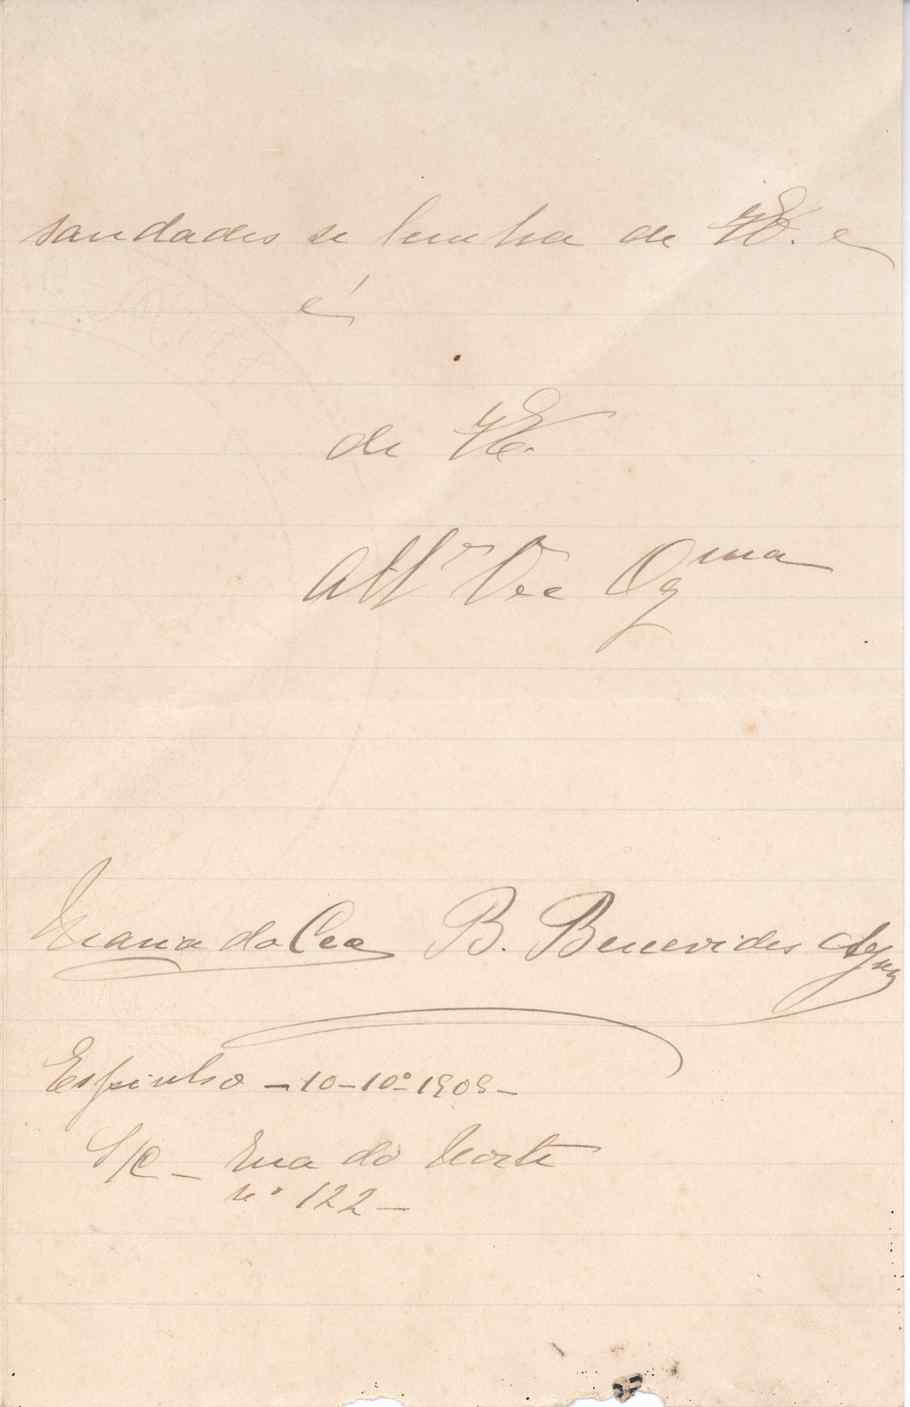 saudades se lembra de VE. e
é
de VE.
Attª Vec Obgma
Maria do Ceo B. Benevides
Espinho - 10-10º-1909-
S/C - Rua do Norte
nº 122 -